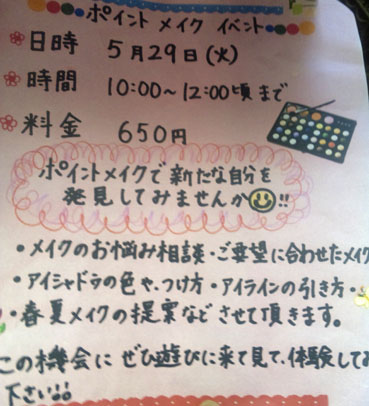 ポイント メイク イベント
日時 5月29日(火)
時間 10:00〜12:00頃まで
料金 650円
ポイントメイクで新たな自分を
発見してみませんか!!
・メイクのお悩み相談・ご要望に合わせたメイク
・アイシャドウの色や、つけ方・アイラインの引き方・
・春夏メイクの提案などさせて頂きます。
この機会にぜひ遊びに来て見て、体験してみ
下さい!!